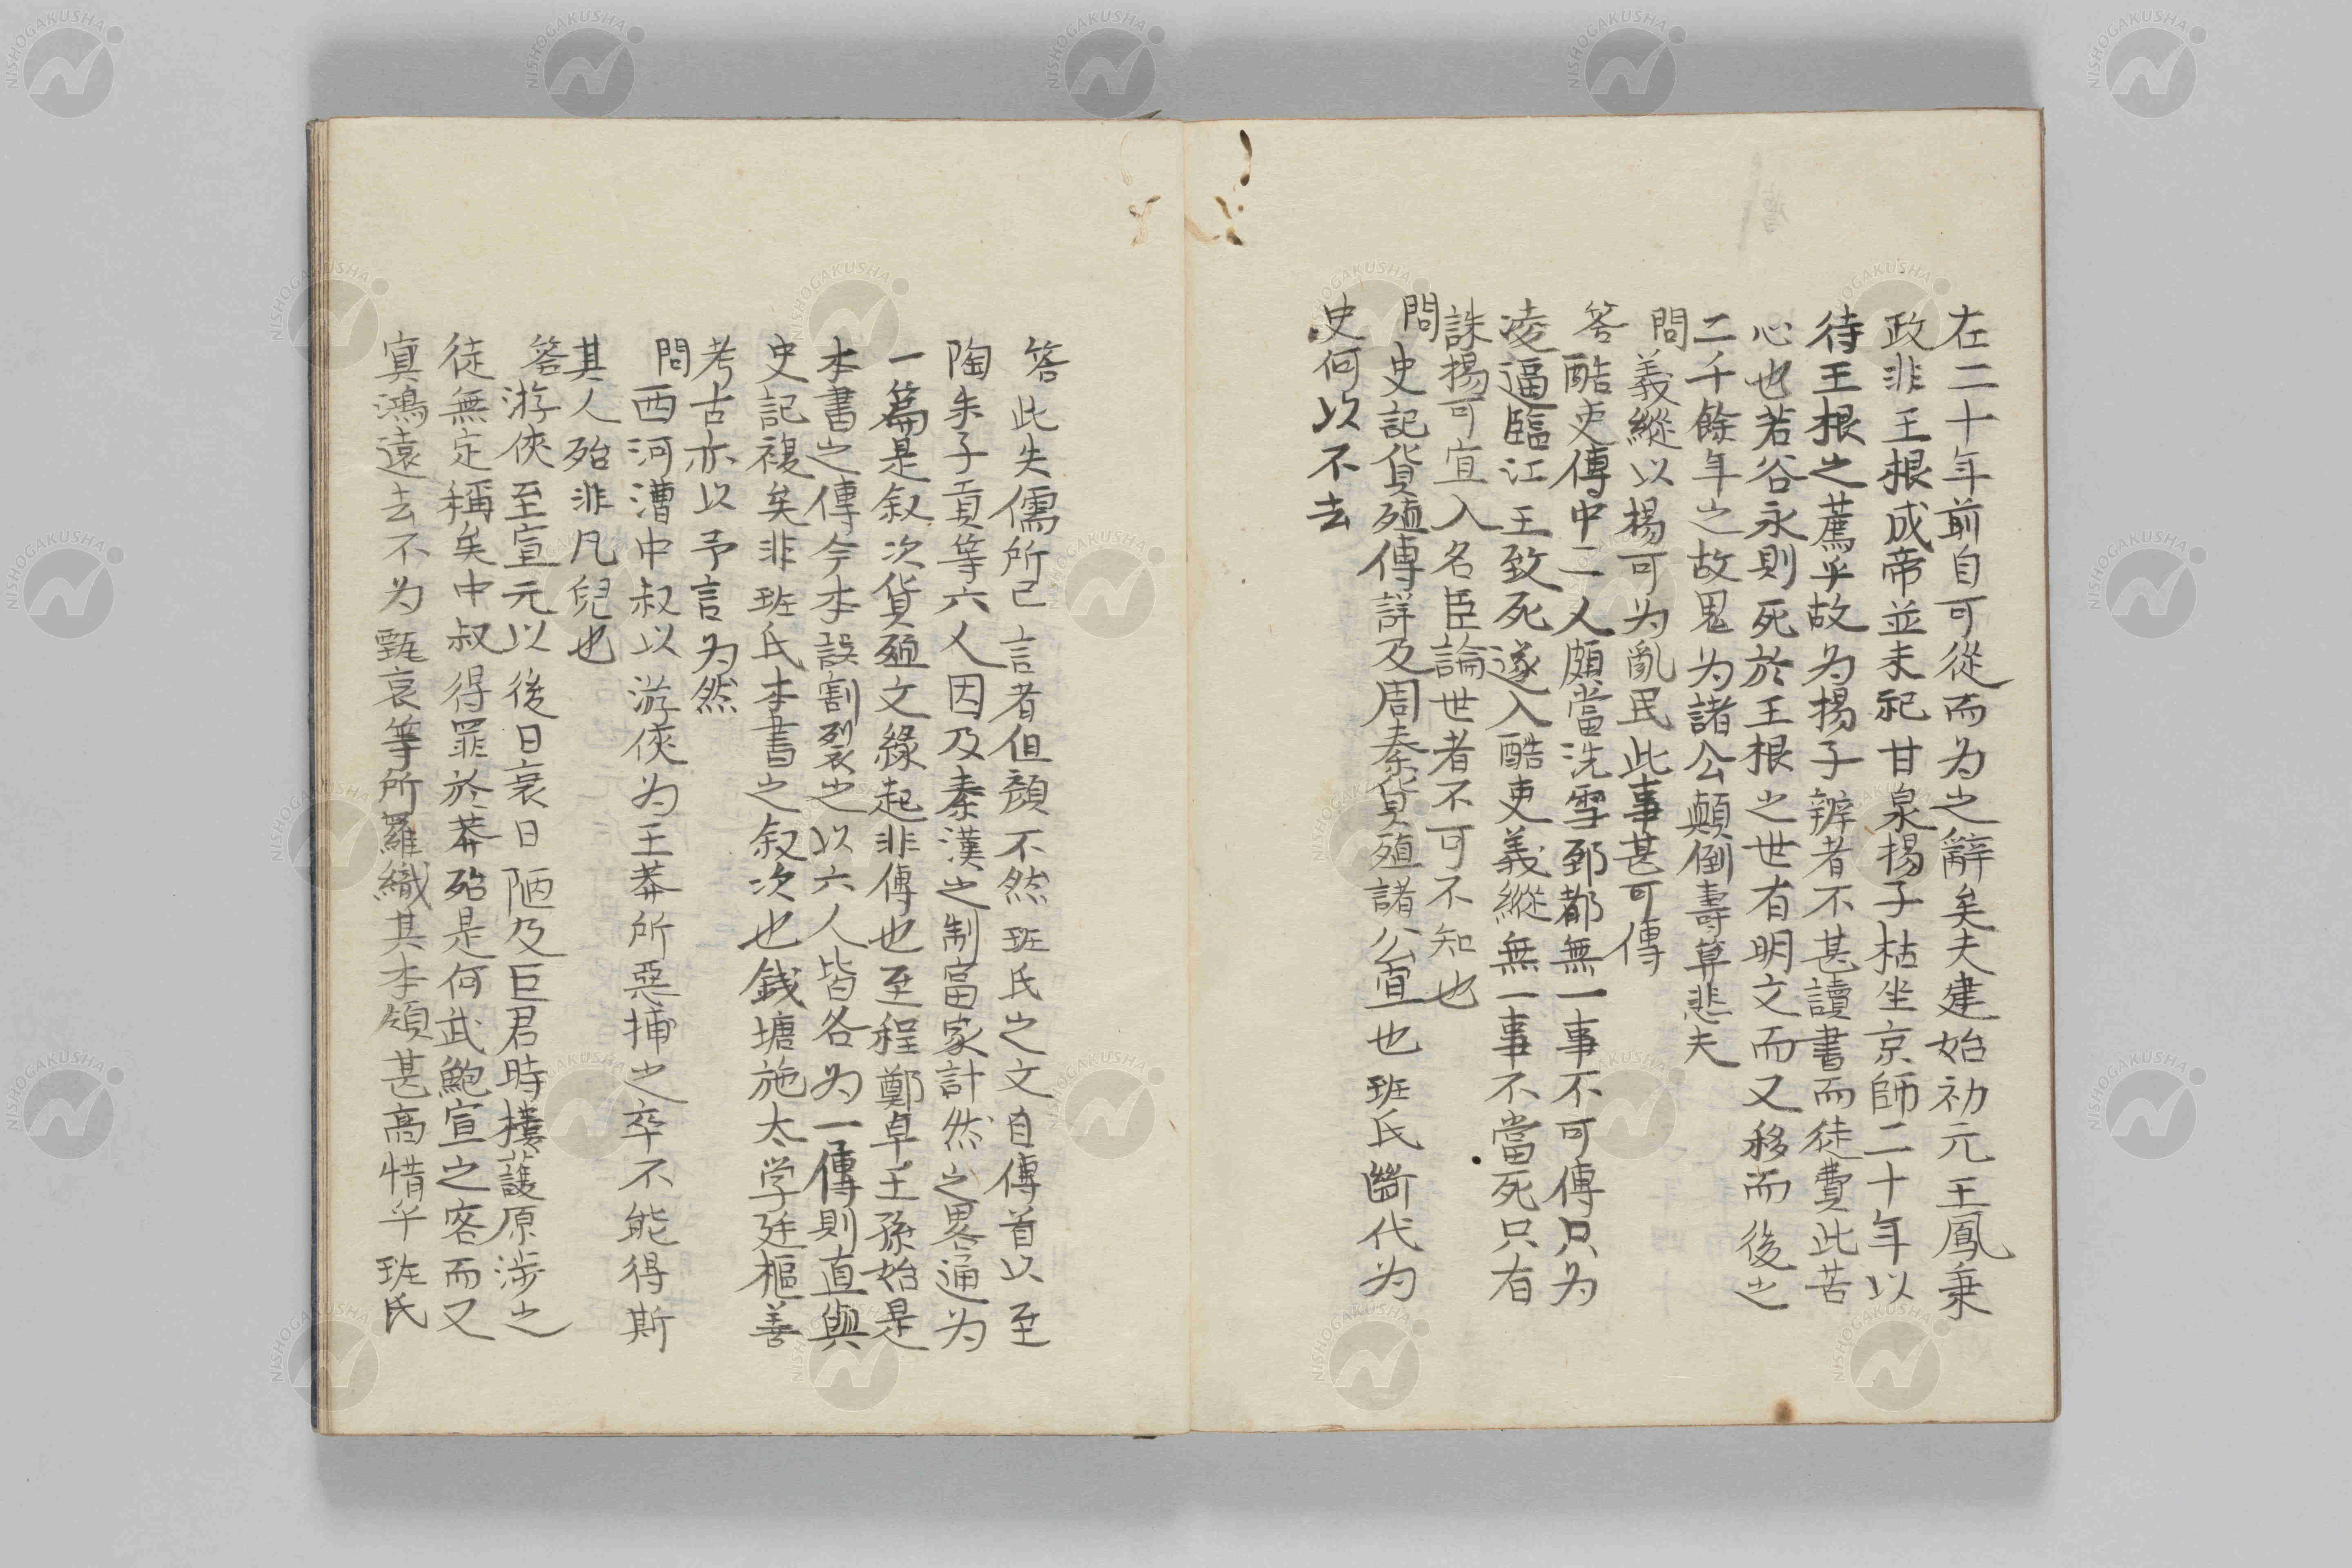 在二十年前自可從而为之辭矣夫建始初元王鳳秉
政非王根成帝並未祀甘泉揚子枯坐京師二十年以
待王根之薦乎故为揚子辨者不甚讀書而徒費此苦
心也若谷永則死於王根之世有明文而又移而後之
二千餘年之故鬼为諸公顛倒壽算悲夫
問義縱以楊可为亂民此事甚可傳
答酷吏傳中二人頗當洗雪郅都無一事不可傳只为
凌逼臨江王致死遂入酷吏義縱無一事不當死只有
誅楊可宜入名臣論世者不可不知也
問史記貨殖傳詳及周秦貨殖諸公宜也班氏斷代为
史何以不去
答此失儒所已言者但顏不然班氏之文自傳首以至
陶朱子貢等六人因及秦漢之制富家計然之畧通为
一篇是叙次貨殖文緣起非傳也至程鄭卓王孫始是
本書之傳今本誤割裂之以六人皆各为一傳則直與
史記複矣非班氏本書之叙次也錢塘施太学廷樞善
考古亦以予言为然
問西河漕中叔以游俠为王莽所惡捕之卒不能得斯
其人殆非凡兒也
答游俠至宣元以後日衰日陋及巨君時樓護原涉之
徒無定稱矣中叔得罪於莽殆是何武鮑宣之客而又
寘鴻遠去不为甄哀等所羅織其本領甚高惜乎班氏
NISHOGAKUSHA